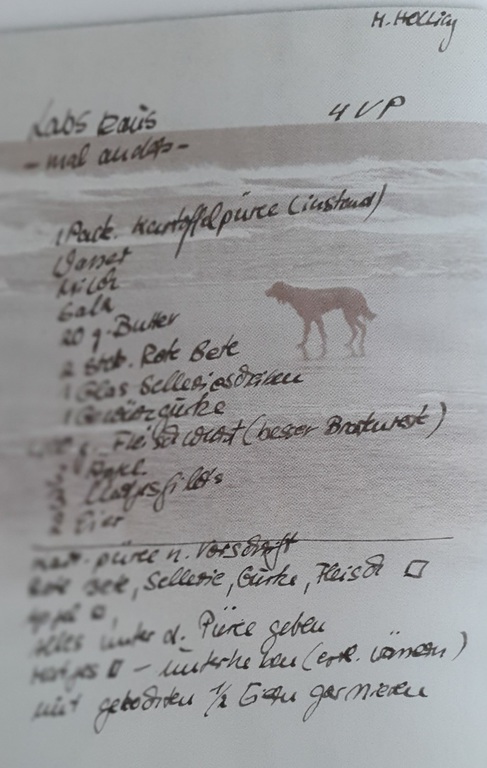 H. Hellwig
Labskaus 4 VP
- mal anders -
1 Pack. Kartoffelpüree (instant)
Wasser
Milch
Salz
20 g Butter
2 Stck. Rote Bete
1 Glas Selleriescheiben
1 Gewürzgurke
g Fleischwurst (besser Bratwurst)
Apfel
Matjesfilets
Eier
püree n. Vorschrift
Rote Bete, Sellerie, Gurke, Fleisch □
Apfel □,
Alles unter d. Püree geben
Matjes □ - unterheben (evtl. wärmen)
mit gekochten 1/2 Eiern garnieren